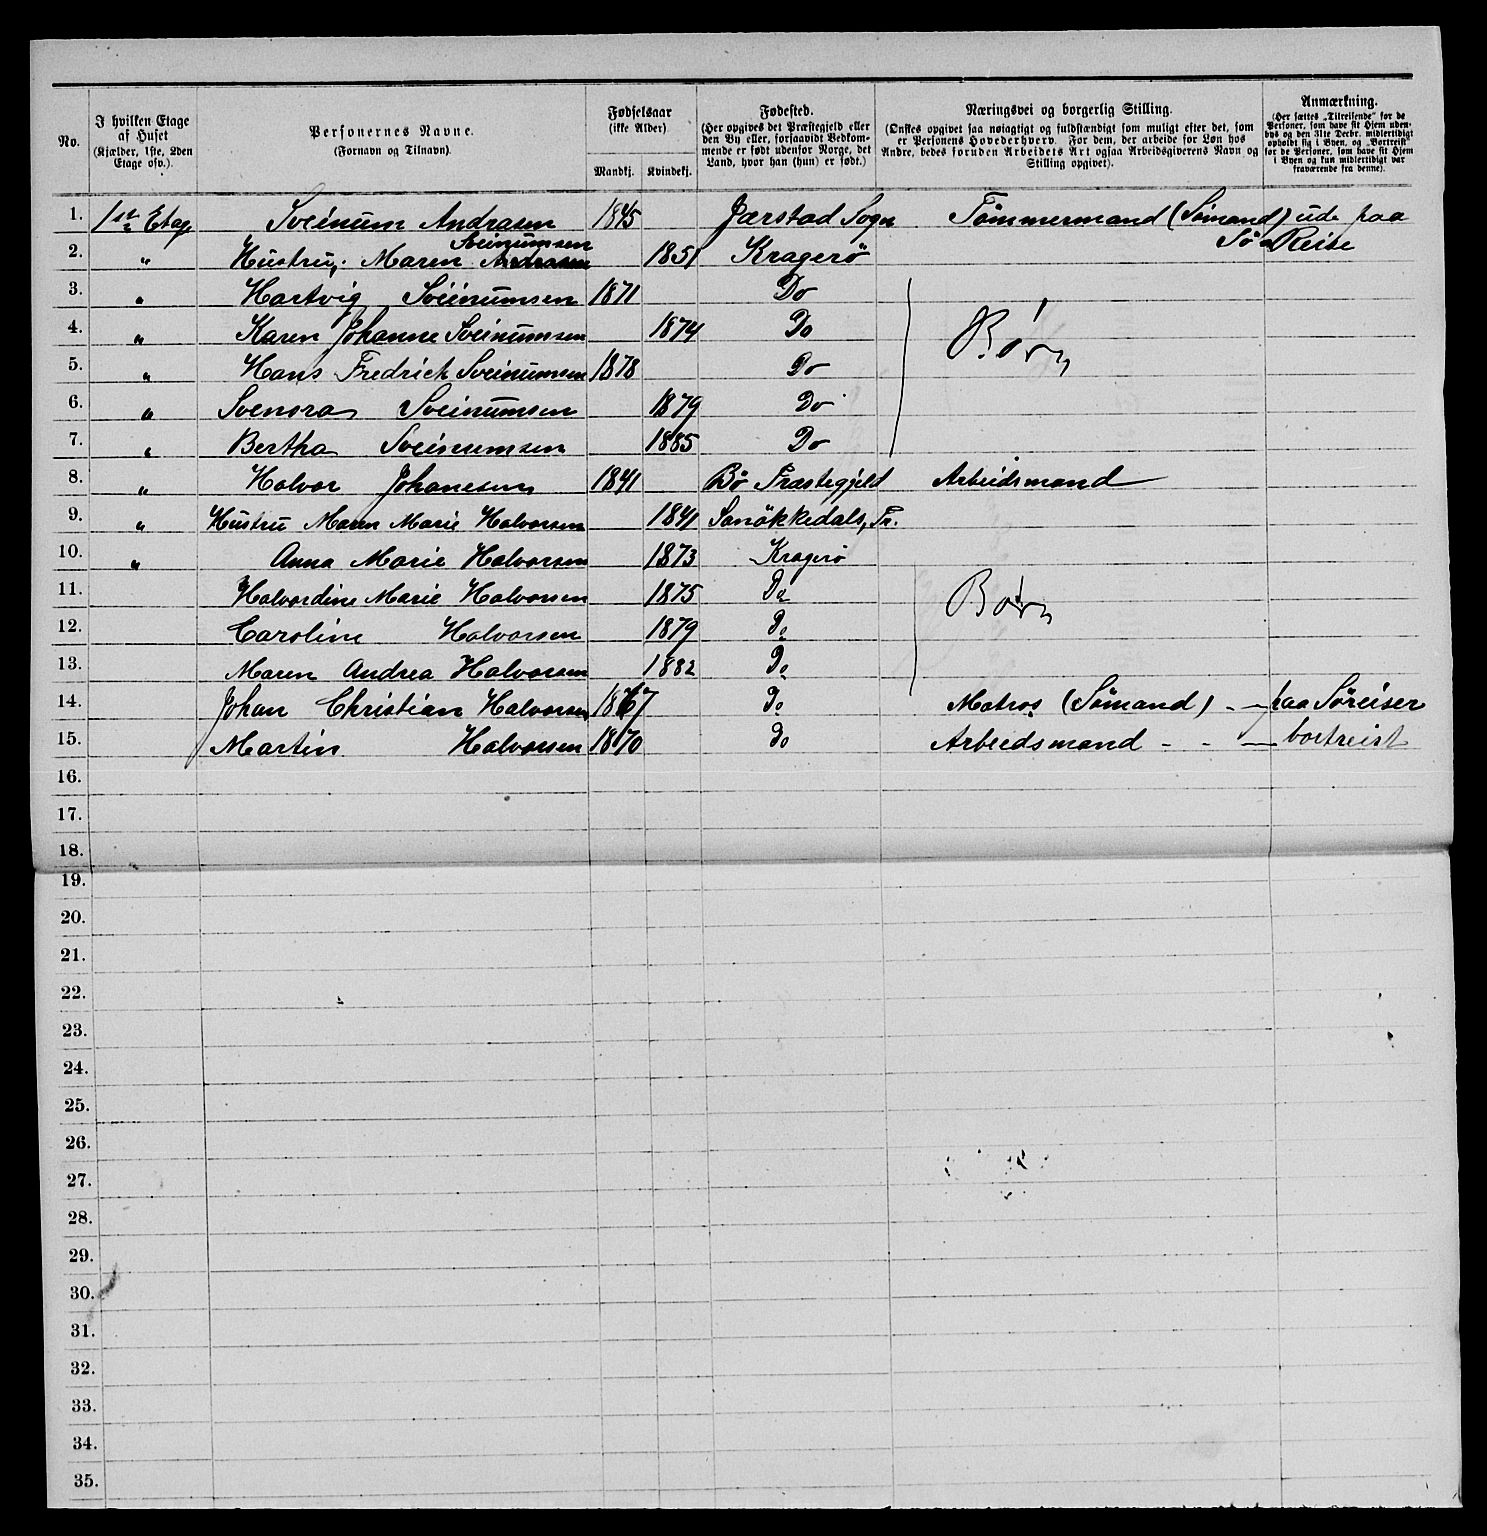 No.
I hvilken Etage af Huset (Kjælder, 1ste, 2den Etage osv.).
Personernes Navne. (Fornavn og Tilnavn).
Fødselsaar (ikke Alder)
Mandkj. Kvindekj.
Fødested. (Her opgives det Præstegjeld eller den By eller, forsaavidt Vedkommende er født udenfor Norge, det Land, hvor han (hun) er født.)
Næringsvei og borgerlig Stilling. (Ønskes opgivet saa nøiagtigt og fuldstændigt som muligt efter det, som er Personens Hovederhverv. For dem, der arbeide for Løn hos Andre, bedes foruden Arbeidets Art ogsaa Arbeidsgiverens Navn og Stilling opgivet).
Anmærkning. (Her sættes „Tilreisende“ for de Personer, som have sit Hjem udenbys og den 31te Decbr. midlertidigt opholdt sig i Byen, og „Bortreist“ for de Personer, som have sit Hjem i Byen og kun midlertidigt var fraværende fra denne).
1. 1ste Etage Sveinum Andrasen 1845 Jærstad Sogn Tömmermand (Sömand) ude paa Sö Reise
Sveinumsen
2. " Hustru, Maren Andrasen 1851 Kragerö
3. " Hartvig Sveinumsen 1871 Do
4. " Karen Johanne Sveinumsen 1874 Do Børn
5. " Hans Fredrich Sveinumsen 1878 Do
6. " Svenora Sveinumsen 1879 Do
7. " Bertha Sveinumsen 1885 Do
8. " Halvor Johanesen 1841 Bö Præstegjeld Arbeidsmand
9. " Hustru Maren Marie Halvorsen 1841 Sanökkedals, Pr.
10. " Anna Marie Halvorsen 1873 Kragerö
11. Halvordine Marie Halvorsen 1875 Do Børn
12. Caroline Halvorsen 1879 Do
13. Maren Andrea Halvorsen 1882 Do
14. Johan Christian Halvorsen 1867 Do Matros (Sömand) - - paa Söreiser
15. Martin Halvorsen 1870 Do Arbeidsmand - - - bortreist
16.
17.
18.
19.
20.
21.
22.
23.
24.
25.
26.
27.
28.
29.
30.
31.
32.
33.
34.
35.